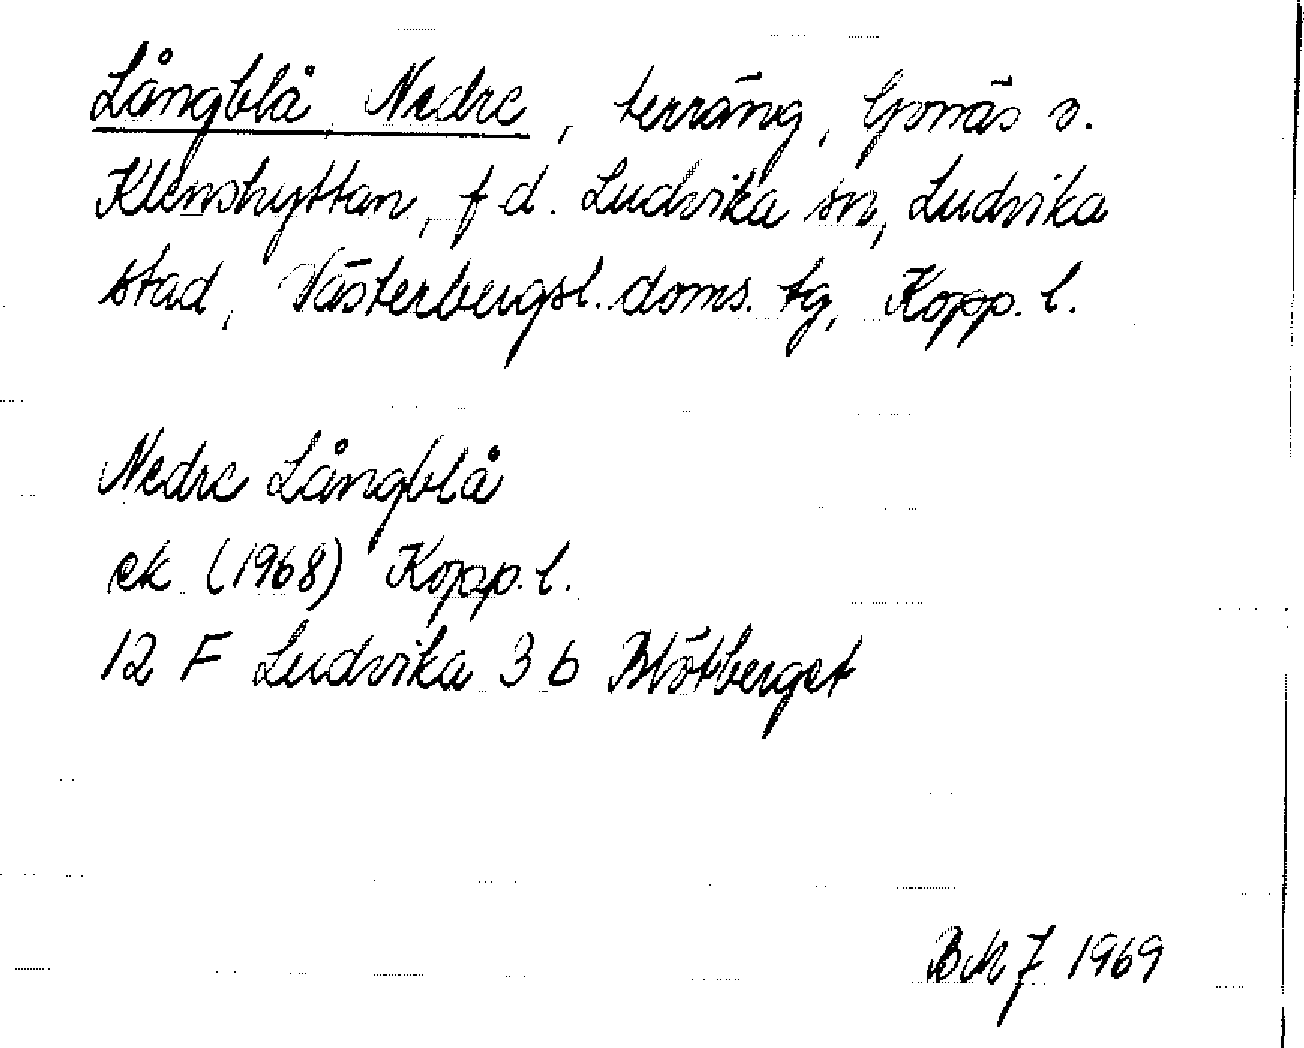 Långblå, Nedre, terräng, Gonäs o.
Klenshyttan, f d. Ludvika sn, Ludvika
stad, Västerbergsl. doms. tg, Kopp. l.
Nedre Långblå
ek (1968) Kopp. l.
12 F Ludvika 3 b Blötberget
1969